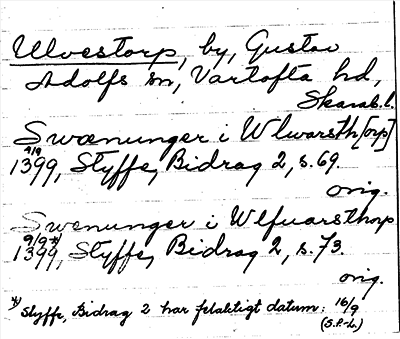 Ulvestorp, by, Gustav
Adolfs sn, Vartofta hd,
Skarab. l.
Swænunger i Wlwarsth[orp]
9/9
1399, Styffe, Bidrag 2, s. 69.
orig.
Swenunger i Wlfuarsthorp
9/9 *)
1399, Styffe, Bidrag 2, s. 73.
orig.
*) Styffe, Bidrag 2 har felaktigt datum: 16/9
(S.P.-L.)